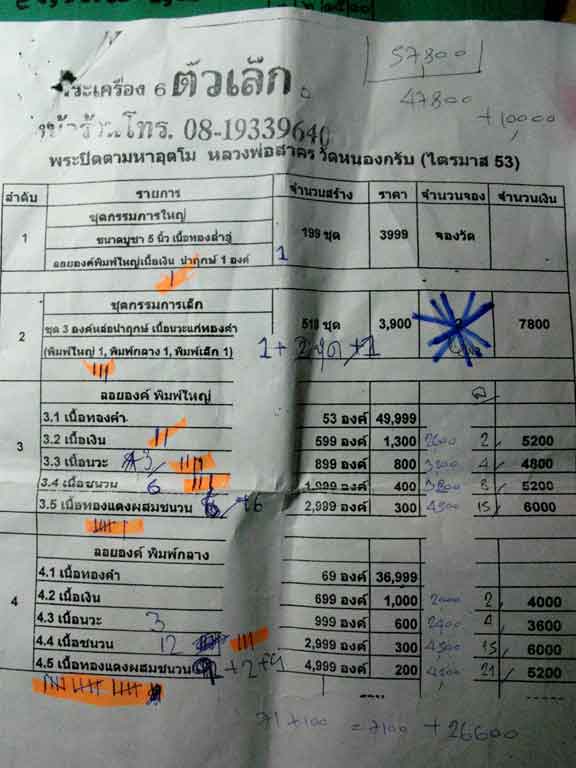 57800
47800
+10,000
พระเครื่อง 6 ตัวเล็ก
โทร. 08-19339640
พระปิดตามหาอุตโม หลวงพ่อสาคร วัดหนองกรับ (ไตรมาส 53)
ลำดับ รายการ จำนวนสร้าง ราคา จำนวนจอง จำนวนเงิน
ชุดกรรมการใหญ่
1 ขนาดบูชา 5 นิ้ว เนื้อทองล่ำอู่ 199 ชุด 3999 จองวัด
ลอยองค์พิมพ์ใหญ่เนื้อเงิน นำฤกษ์ 1 องค์ 1
ชุดกรรมการเล็ก
2 ชุด 3 องค์หล่อนำฤกษ์ เนื้อนวะแก่ทองคำ 518 ชุด 3,900 7800
(พิมพ์ใหญ่ 1, พิมพ์กลาง 1, พิมพ์เล็ก 1) 1+2ชุด+1
ลอยองค์ พิมพ์ใหญ่
3.1 เนื้อทองคำ 53 องค์ 49,999
3 3.2 เนื้อเงิน 599 องค์ 1,300 2600 2 5200
3.3 เนื้อนวะ 3 899 องค์ 800 3200 4 4800
3.4 เนื้อชนวน 6 1,999 องค์ 400 8 5200
3.5 เนื้อทองแดงผสมชนวน +6 2,999 องค์ 300 4500 15 6000
ลอยองค์ พิมพ์กลาง
4.1 เนื้อทองคำ 69 องค์ 36,999
4 4.2 เนื้อเงิน 699 องค์ 1,000 2000 2 4000
4.3 เนื้อนวะ 3 999 องค์ 600 2400 4 3600
4.4 เนื้อชนวน 12 2,999 องค์ 300 4500 15 6000
4.5 เนื้อทองแดงผสมชนวน +2+9 4,999 องค์ 200 21 5200
71+100 =7100 +26600